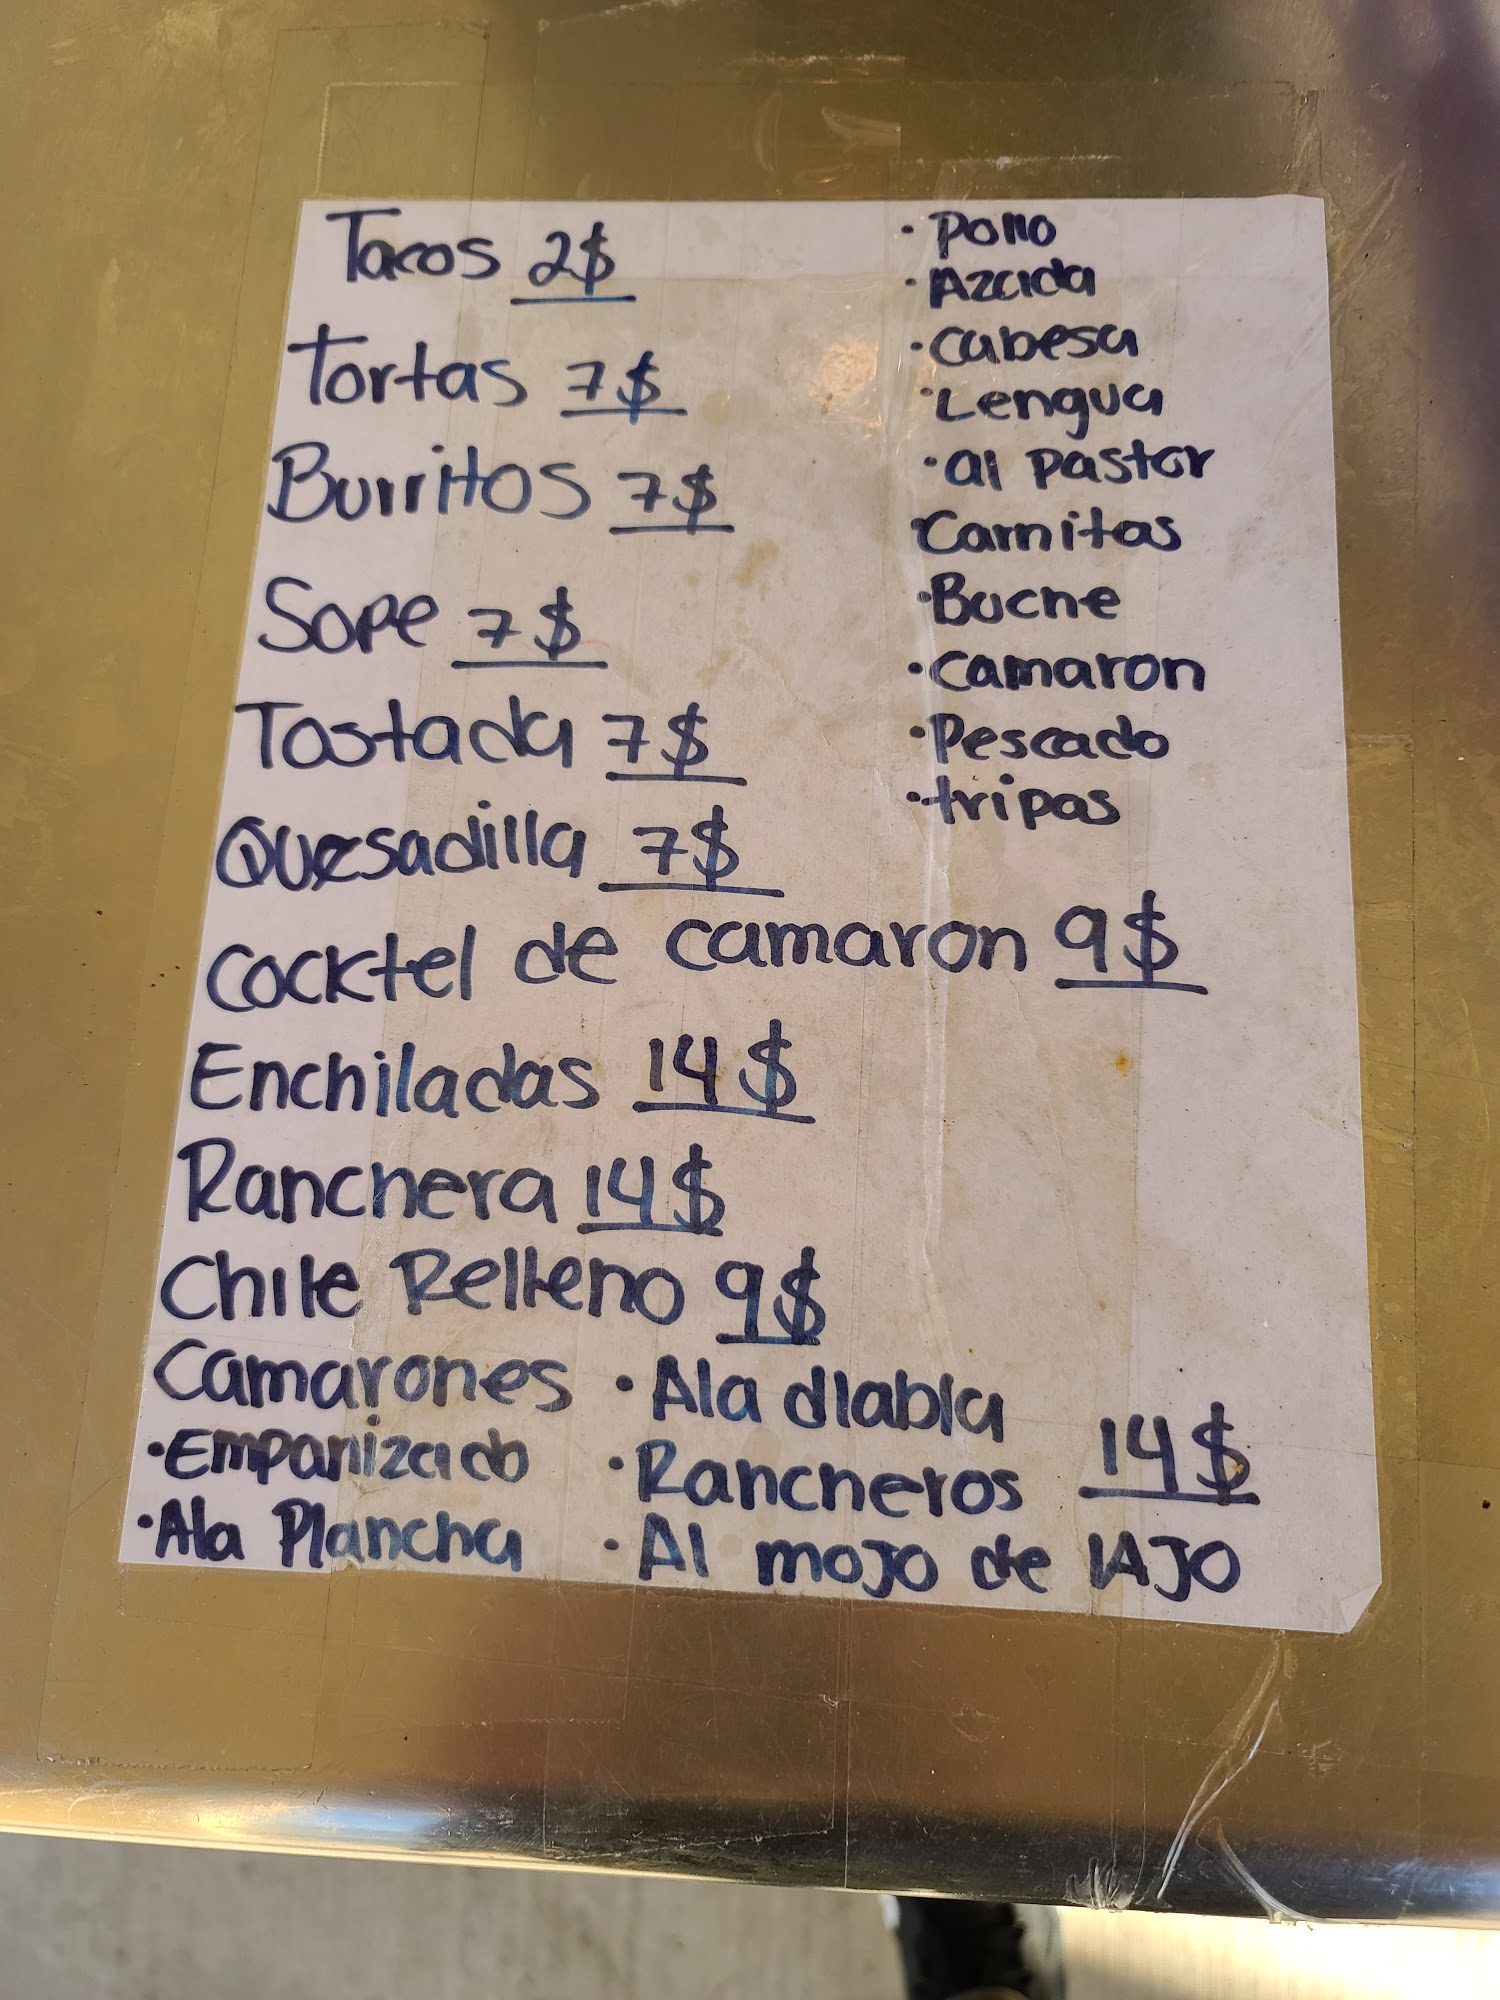 Tacos 2$
Tortas 7$
Burritos 7$
Sope 7$
Tostada 7$
Quesadilla 7$
• Pollo
• Azada
• cabesa
• Lengua
• al pastor
• Carnitas
• Buche
• camaron
• Pescado
• tripas
Cocktel de camaron 9$
Enchiladas 14$
Ranchera 14$
Chile Relleno 9$
Camarones • Ala diabla
• Empanizado • Rancheros 14$
• Ala Plancha • Al mojo de AJO